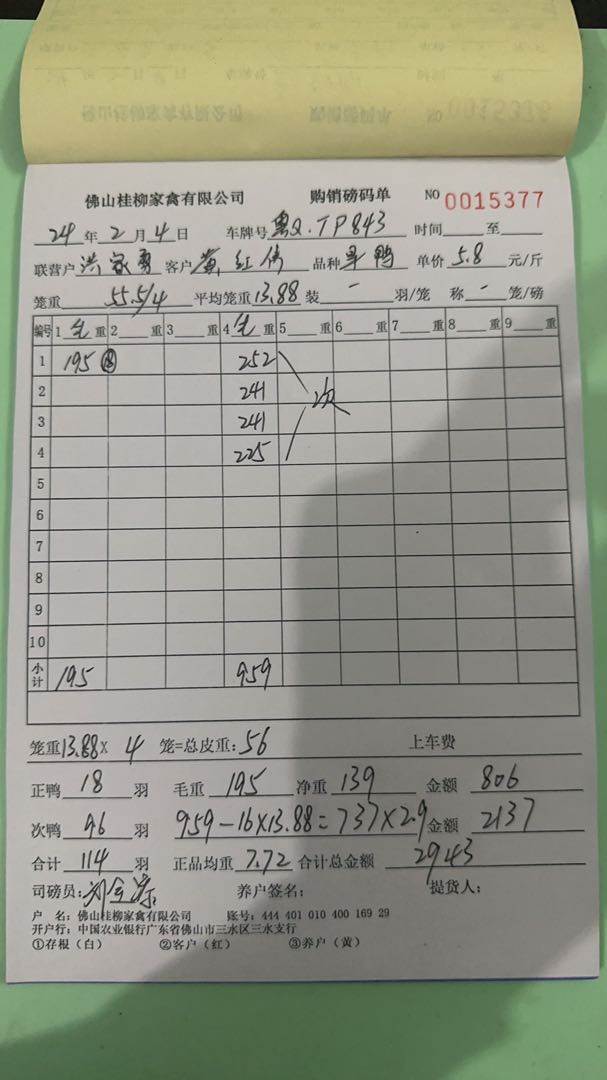 佛山桂柳家禽有限公司 购销磅码单 NO 0015377
24年2月4日 车牌号粤Q.TP843 时间 至
联营户洪家勇 客户黄红伟 品种旱鸭 单价5.8元/斤
笼重55.5/4 平均笼重13.88装-羽/笼 称-笼/磅
编号 1毛重 2重 3重 4毛重 5重 6重 7重 8重 9重
1 195 ⑱ 252
2 241 次
3 241
4 225
5
6
7
8
9
10
小计 195 959
笼重13.88×4笼=总皮重:56 上车费
正鸭18羽 毛重195 净重139 金额806
次鸭96羽 959-16×13.88=737×2.9金额2137
合计114羽 正品均重7.72 合计总金额2943
司磅员: 养户签名: 提货人:
户 名: 佛山桂柳家禽有限公司 账号: 444 401 010 400 169 29
开户行: 中国农业银行广东省佛山市三水区三水支行
①存根（白） ②客户（红） ③养户（黄）